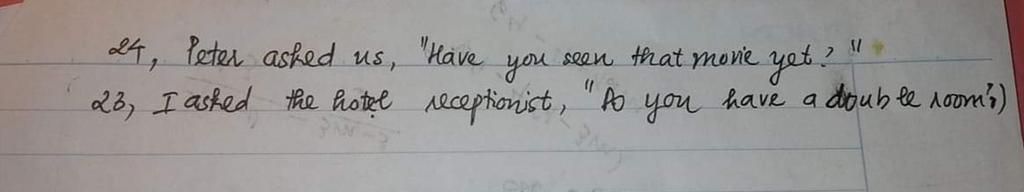 24, Peter asked us, "Have you seen that movie yet?"
23, I asked the hotel receptionist, "Do you have a double room?)